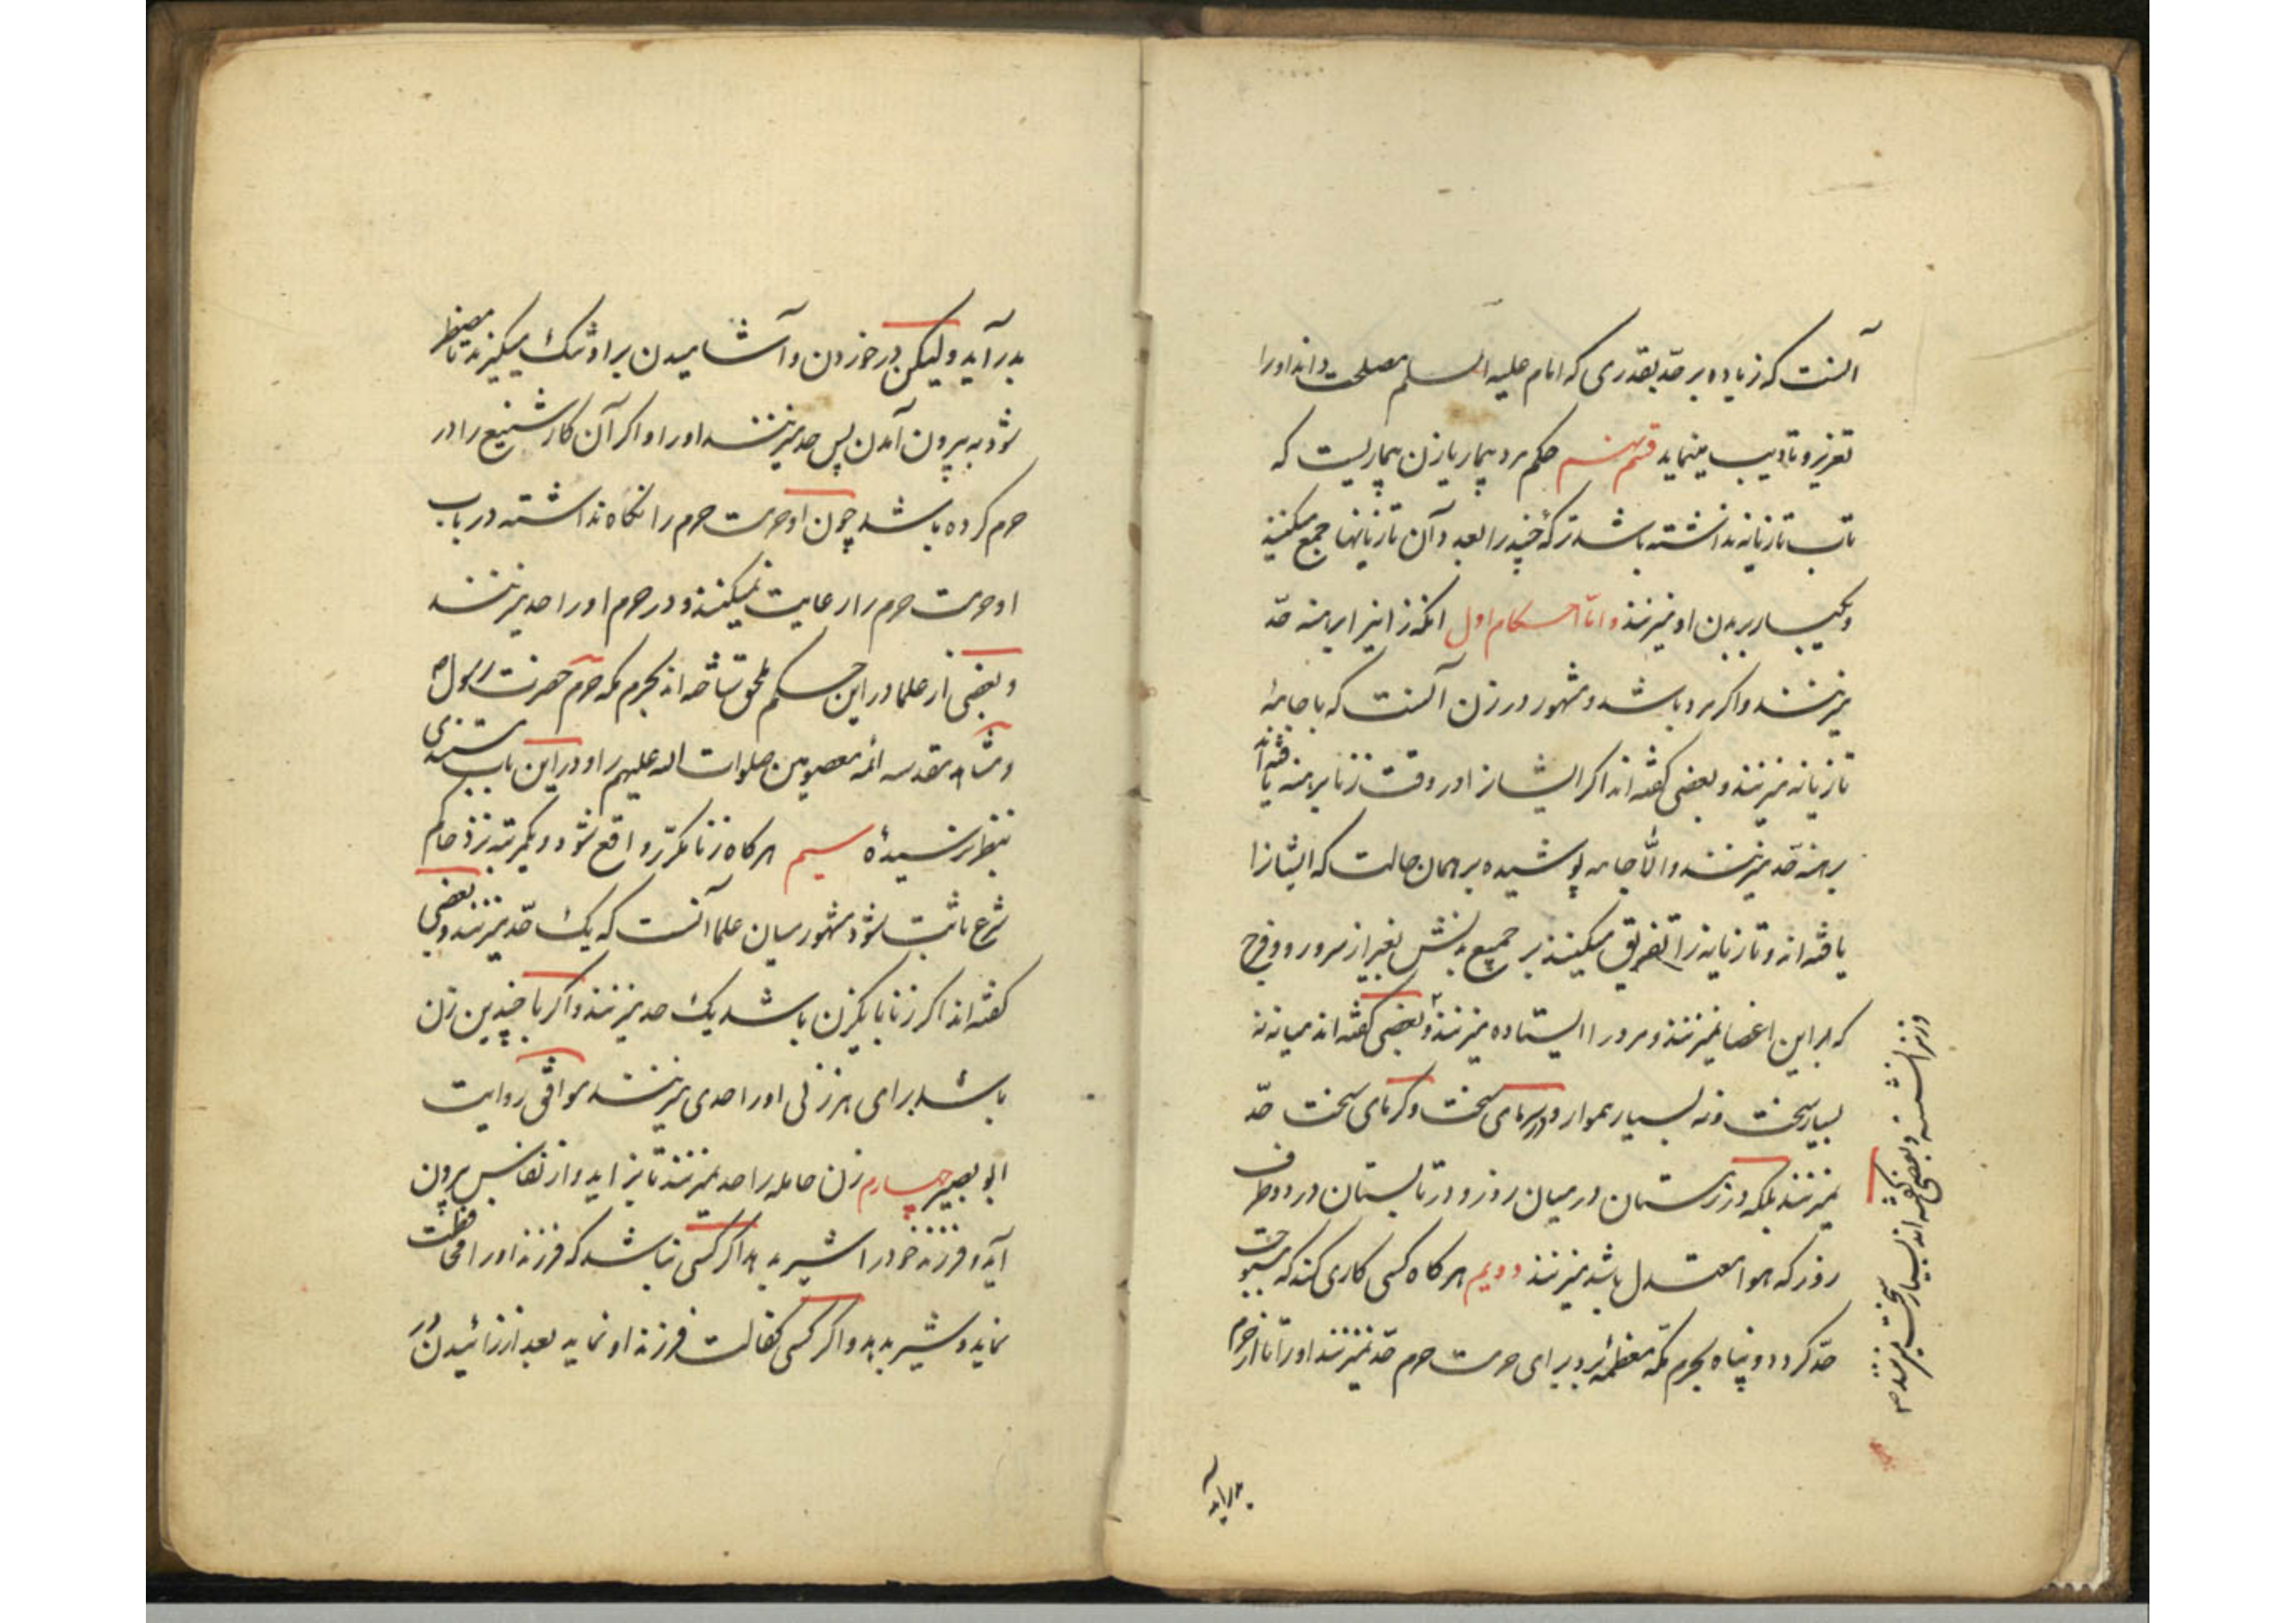 آنست که زیاده بر حدّ بقدری که امام علیه السلم مصلحت داند اورا
تعزیر و تادیب مینماید قسم نهم حکم مرد بیمار یا زن بیماریست که
تاب تازیانه نداشته باشد ترکهٔ چند را بعدد آن تازیانها جمع میکنند
و یکبار بر بدن او میزنند و امّا احکام اول انکه زانیرا برهنه حدّ
میزنند و اگر مرد باشد و مشهور در زن آنست که با جامه
تازیانه میزنند و بعضی گفته اند اگر ایشانرا در وقت زنا برهنه یافته اند
برهنه حدّ میزنند و الّا جامه پوشیده بر همان حالت که ایشانرا
یافته اند و تازیانه را تفریق میکنند بر جمیع بدنش بغیر از سر و رو و فرج
که بر این اعضا نمیزنند و مرد را ایستاده میزنند و بعضی گفته اند میانه نه
بسیار سخت و نه بسیار هموار و در سرمای سخت و گرمای سخت حدّ
نمیزنند بلکه در زمستان در میان روز و در تابستان در دو طرف
روز که هوا معتدل باشد میزنند دویم هر کاه کسی کاری کند که مستوجب
حدّ گردد و پناه بحرم مکّه معظّمه برد برای حرمت حرم حدّ نمیزنند اورا تا از حرم
و زنرا نشسته و بعضی گفته اند بسیار سخت میزنند
بدر آید
بدر آید و لیکن در خوردن و آشامیدن بر او تنک میگیرند تا مضطر
شود به بیرون آمدن پس حد میزنند اورا و اگر آن کار شنیع را در
حرم کرده باشد چون او حرمت حرم را نگاه نداشته در باب
او حرمت حرم را رعایت نمیکنند و در حرم اورا حد میزنند
و بعضی از علما در این حکم ملحق ساخته اند بحرم مکه حرم حضرت رسول ص
و مشاهد مقدسه ائمه معصومین صلوات الله علیهم را و در این باب مستندی
بنظر نرسیده سیم هر کاه زنا مکرّر واقع شود و یکمرتبه نزد حاکم
شرع ثابت شود مشهور میان علما آنست که یک حدّ میزنند و بعضی
گفته اند اگر زنا با یکزن باشد یک حد میزنند و اگر با چندین زن
باشد برای هر زنی اورا حدی میزنند موافق روایت
ابو بصیر چهارم زن حامله را حد نمیزنند تا بزاید و از نفاس بیرون
آید و فرزند خود را شیر بدهد اگر کسی نباشد که فرزند اورا محافظت
نماید و شیر بدهد و اگر کسی کفالت فرزند او نماید بعد از زائیدن